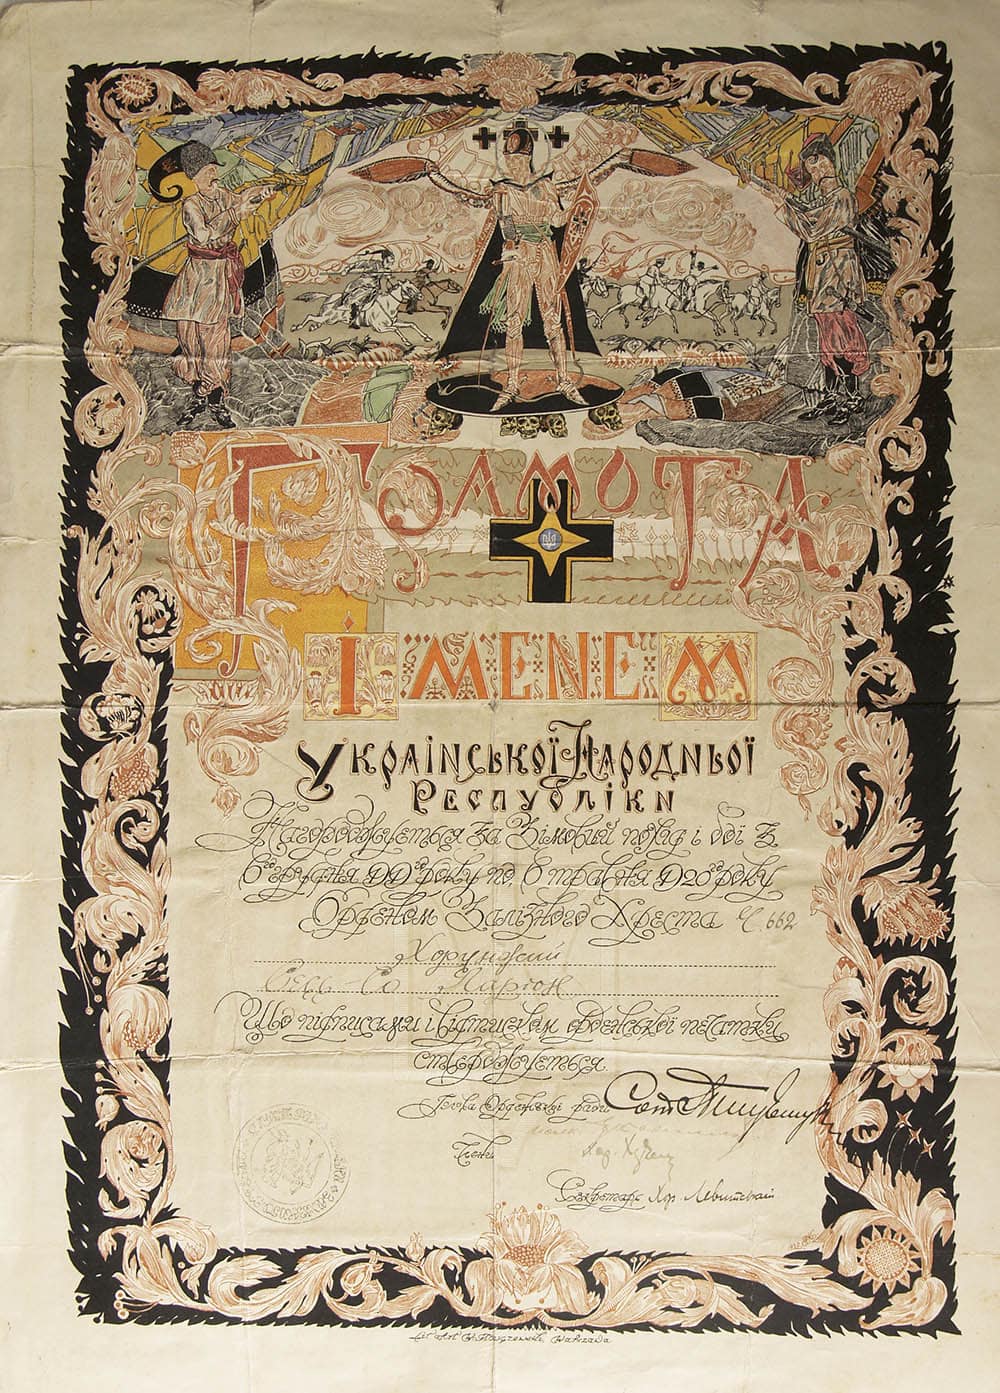 Грамота
Іменем
Української Народньої
Республіки
Нагороджується за Зімовий похід і бої з
6го грудня 1919го року по 6 травня 1920го року
Орденом Залізного Хреста Ч. 662
Хорунжий
Маріон
Що підписами і відтиском орденської печатки
стверджується.
Голова Орденської ради
Члени
Секретарь Хор. Левитський